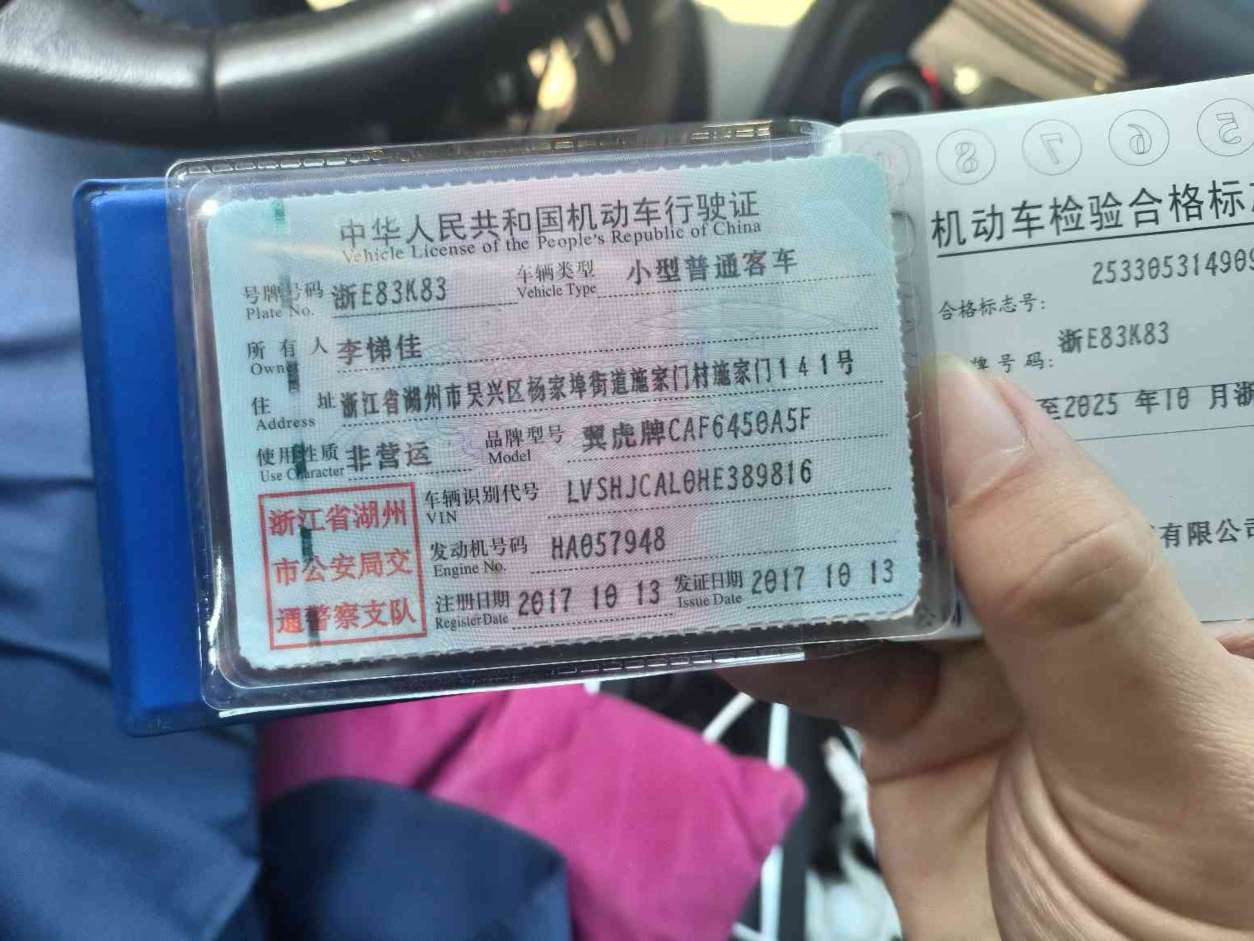 中华人民共和国机动车行驶证
Vehicle License of the People's Republic of China
号牌号码 浙E83K83 车辆类型 小型普通客车
Plate No. Vehicle Type
所有人 李悌佳
Owner
住址 浙江省湖州市吴兴区杨家埠街道施家门村施家门141号
Address
使用性质 非营运 品牌型号 翼虎牌CAF6450A5F
Use Character Model
车辆识别代号 LVSHJCAL0HE389816
VIN
发动机号码 HA057948
Engine No.
注册日期 2017 10 13 发证日期 2017 10 13
Register Date Issue Date
浙江省湖州
市公安局交
通警察支队
8 7 6 5
机动车检验合格标
25330531490
合格标志号:
浙E83K83
牌号码:
至2025 年10 月浙
有限公司